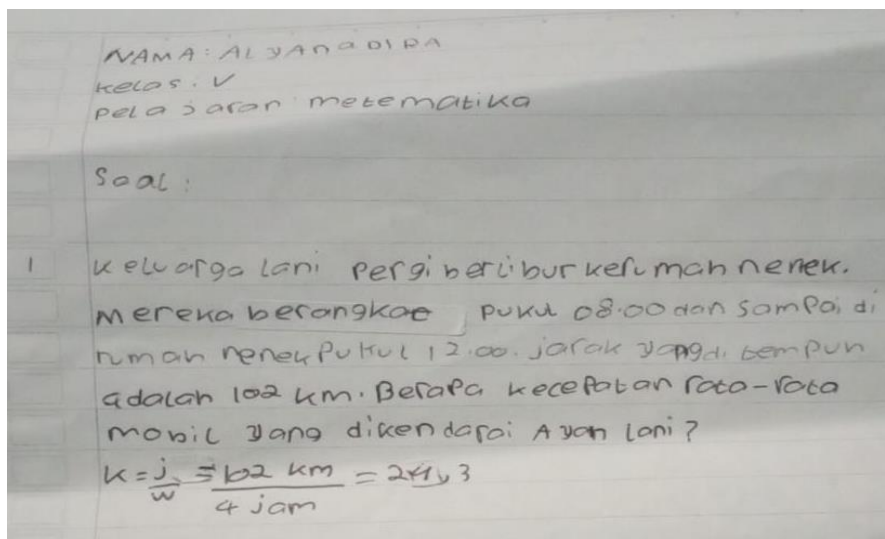 NAMA: ALYANADIRA
Kelas: V
Pelajaran metematika
Soal:
1 Keluarga lani pergi berlibur kerumah nenek.
Mereka berangkat pukul 08.00 dan sampai di
rumah nenek pukul 12.00. jarak yang di tempuh
adalah 102 km. Berapa kecepatan rata-rata
mobil yang dikendarai Ayah lani?
K = j/w = 102 km / 4 jam =